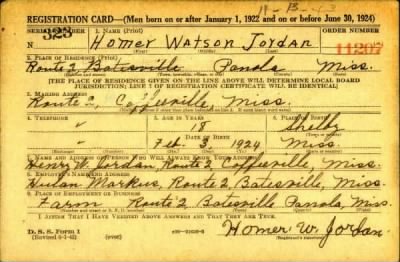 11-13-43
REGISTRATION CARD—(Men born on or after January 1, 1922 and on or before June 30, 1924)
SERIAL NUMBER 1. NAME (Print) ORDER NUMBER
N 323 Homer Watson Jordan 11207
2. PLACE OF RESIDENCE (Print)
Route 2 Batesville Panola Miss.
[THE PLACE OF RESIDENCE GIVEN ON THE LINE ABOVE WILL DETERMINE LOCAL BOARD
JURISDICTION; LINE 2 OF REGISTRATION CERTIFICATE WILL BE IDENTICAL]
3. MAILING ADDRESS
Route 2, Coffeeville, Miss.
4. TELEPHONE 5. AGE IN YEARS 6. PLACE OF BIRTH
18
DATE OF BIRTH
Feb. 3, 1924 Miss.
7. NAME AND ADDRESS OF PERSON WHO WILL ALWAYS KNOW YOUR ADDRESS
Henry W. Jordan, Route 2, Coffeeville, Miss.
8. EMPLOYER'S NAME AND ADDRESS
Markus, Route 2, Batesville, Miss.
9. PLACE OF EMPLOYMENT OR BUSINESS
Farm Route 2 Batesville Panola, Miss.
I AFFIRM THAT I HAVE VERIFIED ABOVE ANSWERS AND THAT THEY ARE TRUE.
D. S. S. Form 1
Homer W. Jordan